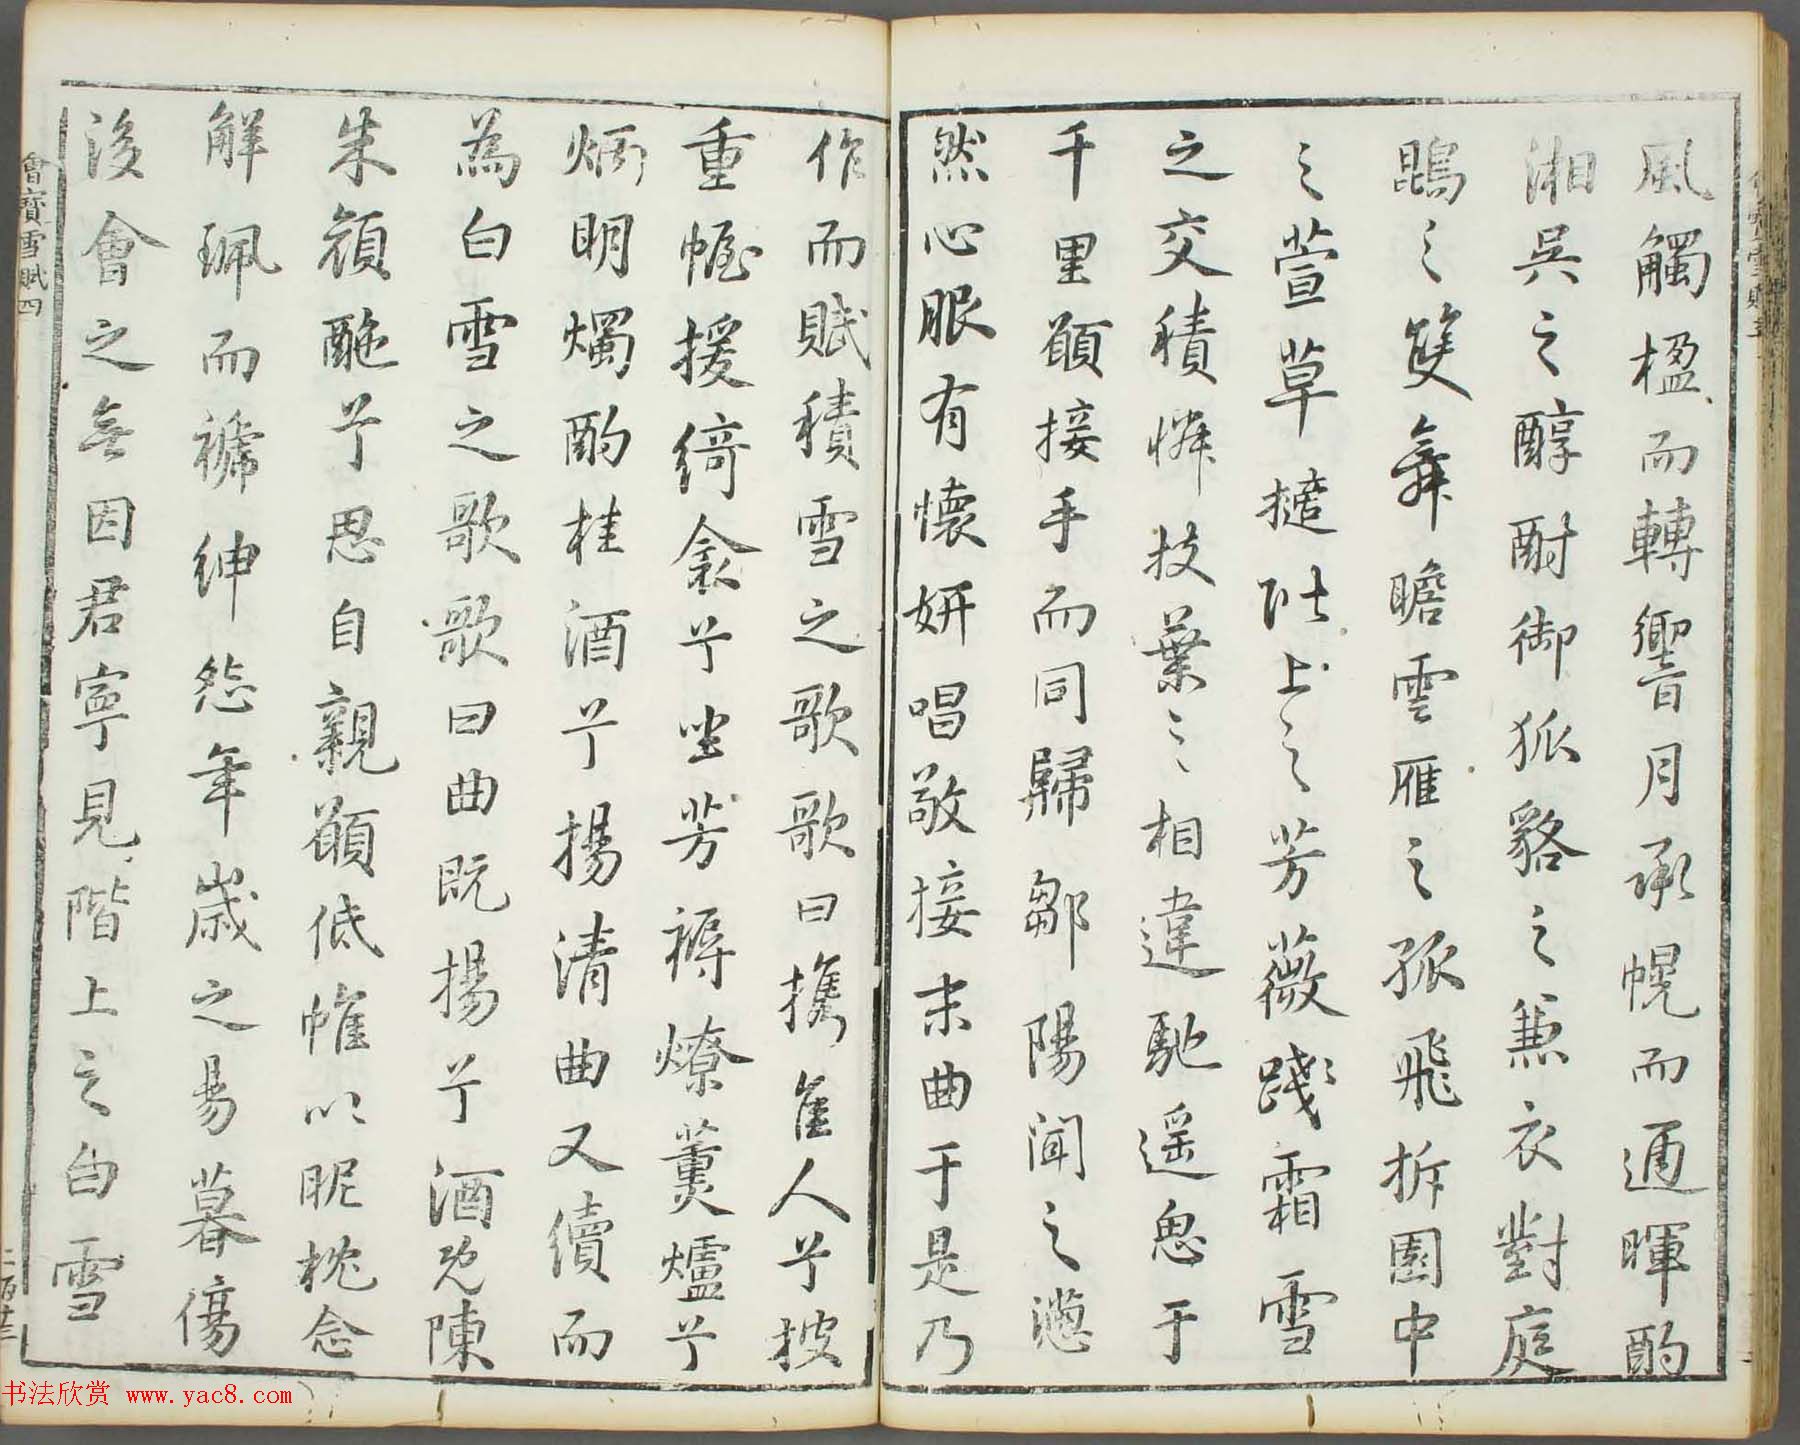 風觸楹而轉響月承幌而通暉酌
湘吳之醇酎御狐貉之兼衣對庭
鵾之雙舞瞻雲雁之孤飛拆園中
之萱草摭階上之芳薇踐霜雪
之交積憐枝葉之相違馳遥思于
千里願接手而同歸鄒陽聞之懣
然心服有懷妍唱敬接末曲于是乃
作而賦積雪之歌歌曰攜佳人兮披
重幄援綺衾兮坐芳褥燎薰爐兮
炳明燭酌桂酒兮揚清曲又續而
為白雪之歌歌曰曲既揚兮酒既陳
朱顔酡兮思自親願低帷以昵枕念
解珮而褫紳怨年歲之易暮傷
後會之無因君寧見階上之白雪
會寶雪賦四
书法欣赏 www.yac8.com